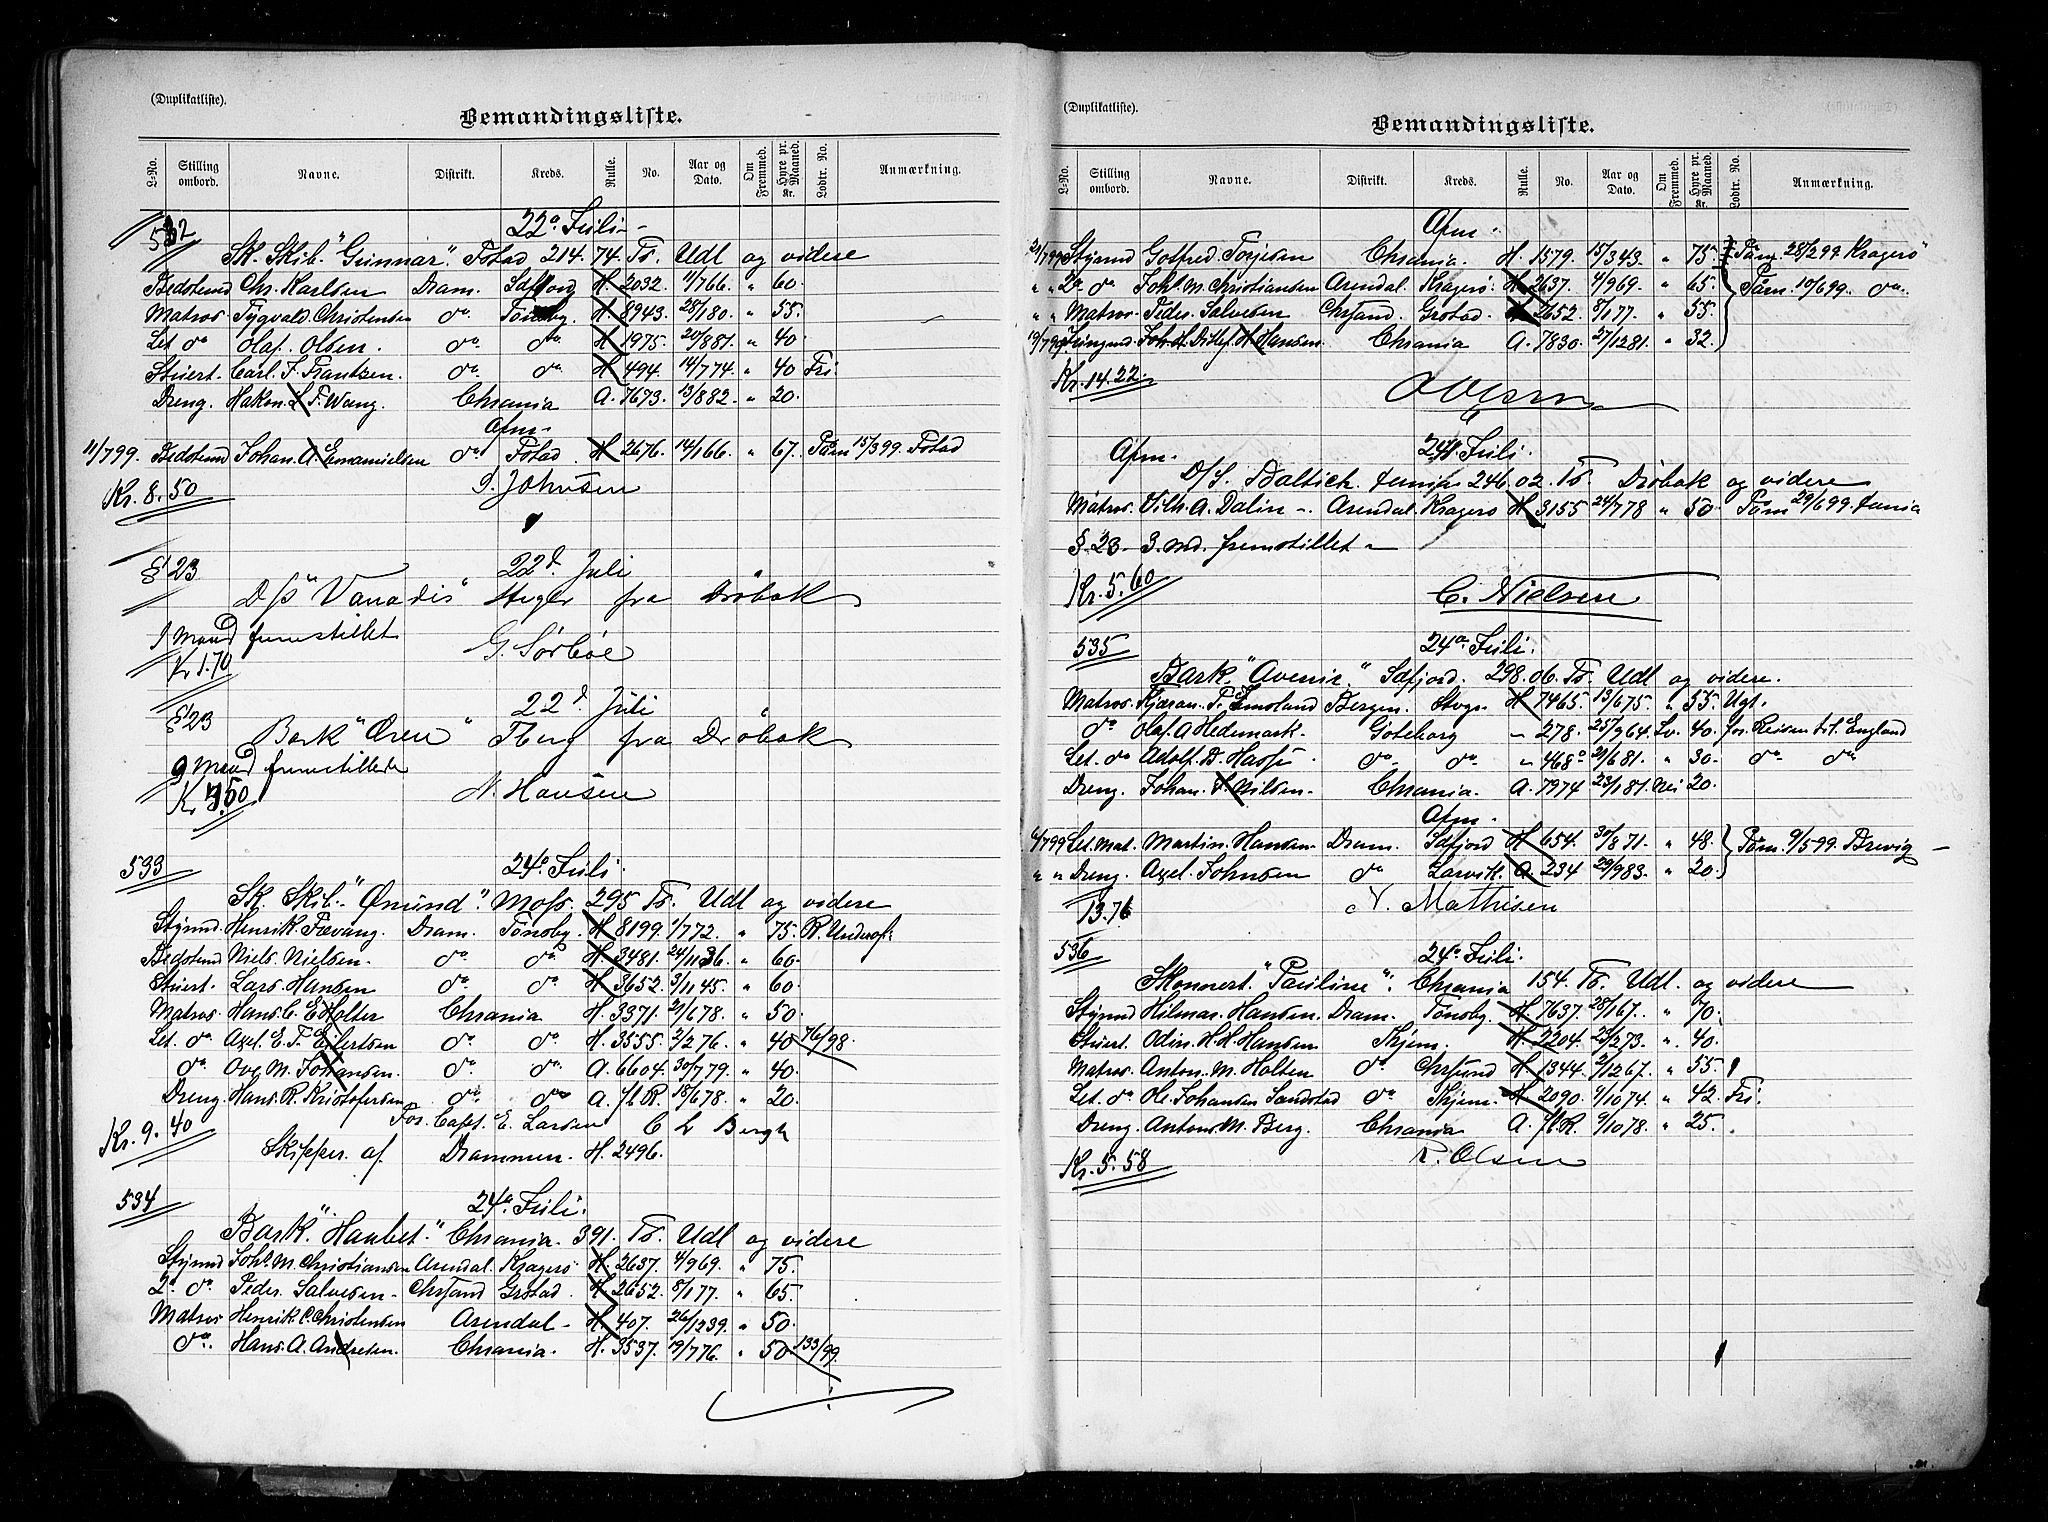 (Duplikatliste).
Bemandingsliste.
L-No. Stilling ombord. Navne. Distrikt. Kreds. Rulle. No. Aar og Dato. Om Fremmed. Hyre pr. Maaned. Kr. Lodtr. No. Anmærkning.
532 22d Juli
Sk. Skib. "Gunnar" Fstad 214.74. Ts. Udl og videre
Bedstmd Chr. Karlsen Dram. Sdfjord H. 2032. 11/766. " 60.
Matros. Tygvald. Christensen do Tönsbg. H. 8943. 28/180. " 55.
Let do Olaf. Olsen. do do H. 1975. 20/881. " 40.
Stuert. Carl. F. Frantzen. do do H. 494. 14/774. " 40 Fri
Dreng. Hakon. L. F. Wang. Chrania A. 7673. 13/882. " 20.
Afm.
11/799. Bedstmd Johan. A. Emanuelsen do Fstad. H. 2676. 14/166. " 67. Paam 15/399. Fstad
Kr. 8.50 J. Johnsen
§ 23 22d. Juli
D/S "Vanadis" Steger fra Dröbak
1 mand fremstillet G. Sörböe
Kr 1.70
§ 23 22d Juli
Bark "Ören" Tberg fra Dröbak
9 mand fremstillede
N. Hansen
533 24d Juli
Sk. Skib. "Ömund". Moss. 295 Ts. Udl og videre
Styrmd. Henrik. Fævang. Dram. Tönsbg. H. 8199. 1/772. " 75. R. Underof.
Bedstmd Niels. Nielsen. do do H. 3481. 24/1136. " 60.
Stuert. Lars. Hansen do do H. 3652. 3/1145. " 60.
Matros Hans. C. E. Holter Chrania H. 3371. 21/678. " 50.
Let. do Axel. E. F. Eilertsen do do H. 3555. 2/276. " 40 76/98.
do. Ove. M. Johansen. do. do. A. 6604. 30/779. " 40.
Dreng. Hans. R. Kristofersen do do A. fl R. 18/678. " 20.
Kr. 9.40 For. Capt. E. Larsen C L Bergh
Skipper. af Drammen. H. 2496.
534 24d. Juli.
Bark. "Haabet." Chrania. 391. Ts. Udl og videre
Styrmd Johs. M. Christiansen Arendal. Kragerö H. 2637. 4/969. " 75.
2d do Peder. Salvesen. Chrsand Grstad. H. 2652. 8/177. " 65.
Matros Henrik. C. Christensen Arendal H. 407. 26/1239. " 50.
do. Hans. A. Andresen. Chrania. H. 3537. 19/776. " 50 133/99.
(Duplikatliste).
Bemandingsliste.
L-No. Stilling ombord. Navne. Distrikt. Kreds. Rulle. No. Aar og Dato. Om Fremmed. Hyre pr. Maaned. Kr. Lodtr. No. Anmærkning.
Afm.
21/799 Styrmd Gotfred. Torjesen Chrania. H. 1579. 15/343. " 75. Paam. 28/299 Kragerö
" " 2d do Johs. M. Christiansen Arendal. Kragerö. H. 2637. 4/969. " 65. Paam. 10/699. do.
" " Matros. Peder. Salvesen Chrsand. Grstad. H. 2652. 8/177. " 55.
19/799 Joh. H. Ditlef. H. Hansen. Chrania A. 7830. 27/1281. " 32.
Kr. 14.22.
Afm. 24d. Juli.
D/S. Baltick. 246.02. Ts. Dröbak og videre
Matros. Vilh. A. Dalin. Arendal. Kragerö H. 3155 24/778 " 50. Paam 29/699.
§. 23. 3. md. fremstillet
Kr. 5.60 C. Nielsen
535 24d Juli.
Bark. "Avenir." Sdfjord. 298.06. Ts. Udl og videre.
Matros. Kjæran. P. Bergen. Stvgr H. 7465. 13/675. " 55. Ugt.
do Olaf. A Hedemark. Göteborg 278. 25/964. Sv. 40. for. Reisen til England
Let. do Adolf. B. do. do. " 468 21/681. " 30. do do
Dreng. Johan. F. Nilsen. Chrania. A. 7974 23/181. Nei 20.
Afm.
6/799 Let. Mat. Martin. Hansen. Dram. Sdfjord H. 654. 30/871. " 48. Paam. 9/599. Brevig
" " Dreng. Axel. Johnsen do Larvik. A. 234 29/983. " 20.
13.76 N. Mathisen
536 24d Juli.
Skonnert. "Pauline". Chrania 154. Ts. Udl. og videre
Styrmd Hilmar. Hansen. Dram. Tönsbg. H. 7637. 28/167. " 70.
Stuert. Odin. H. H. Hansen Thjem. H. 2204. 23/273. " 40.
Matros Anton. M. Holten do Chrsund H. 1344. 2/1267. " 55.
Let. do Ole. Johansen Sandstad do Thjem. H. 2090. 4/1074. " 42. Fri.
Dreng. Antons. M. Berg. Chrania A. fl R. 9/1078. " 25.
Kr. 5.58 T. Olsen